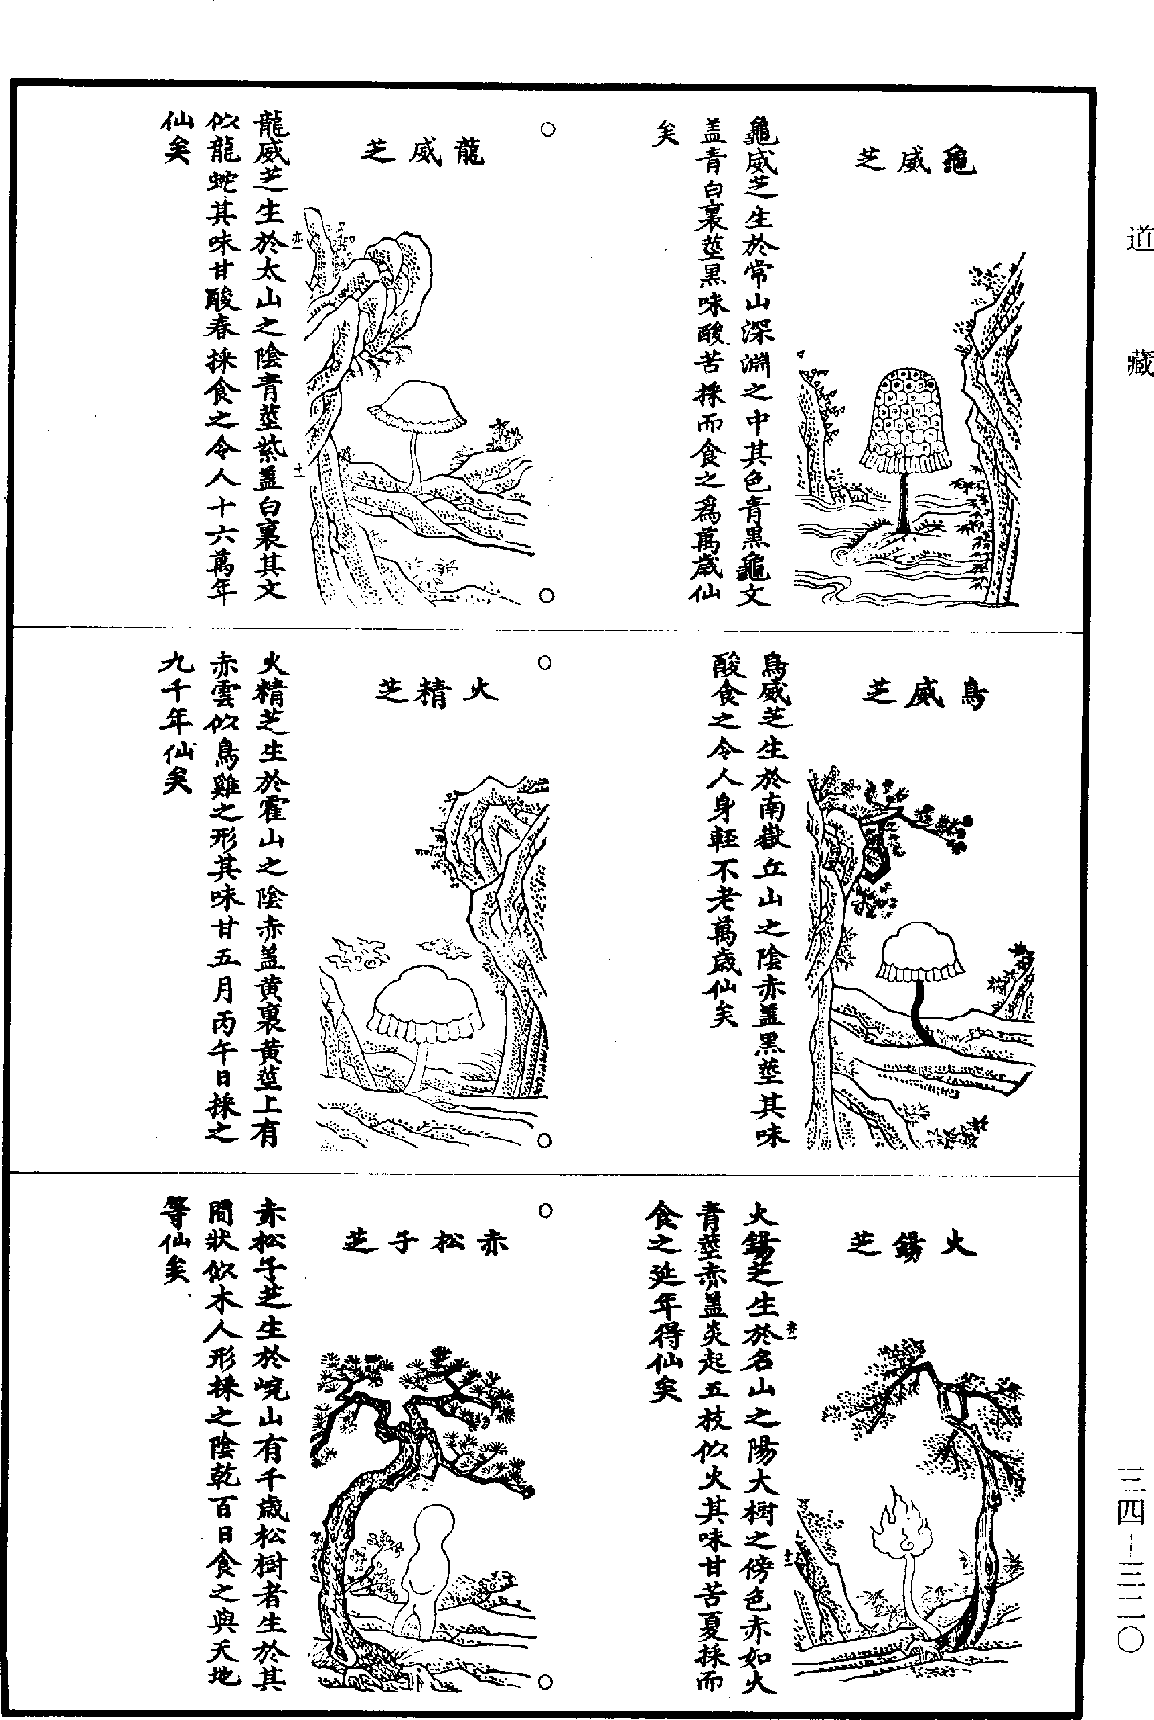 道藏
龜威芝
龜威芝生於常山深淵之中其色青黑龜文
盖青白裏莖黑味酸苦採而食之為萬歲仙
矣
龍威芝
龍威芝生於太山之陰青莖紫蓋白裏其文
似龍蛇其味甘酸春採食之令人十六萬年
仙矣
鳥威芝
鳥威芝生於南嶽丘山之陰赤蓋黑莖其味
酸食之令人身輕不老萬歲仙矣
火精芝
火精芝生於霍山之陰赤盖黃裏黃莖上有
赤雲似鳥雞之形其味甘五月丙午日採之
九千年仙矣
火鍚芝
火鍚芝生於名山之陽大樹之傍色赤如火
青莖赤蓋炎起五枝似火其味甘苦夏採而
食之延年得仙矣
赤松子芝
赤松子芝生於峴山有千歲松樹者生於其
間狀似木人形採之陰乾百日食之與天地
等仙矣
三四—三二〇